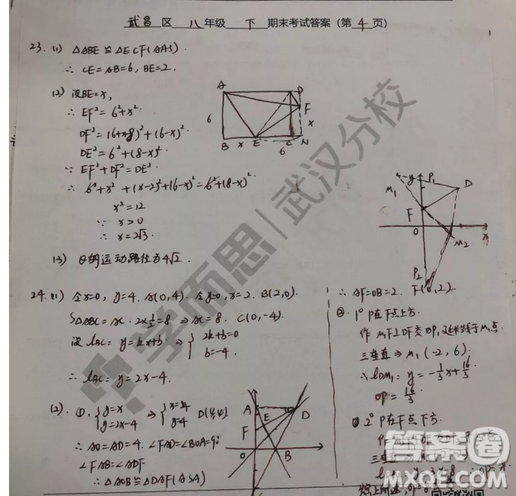 武昌 区 八 年级 下 期末考试答案（第 4 页）
23. (1) △ABE ≌ △ECF(AAS)
∴ CE=AB=6, BE=2.
(2) 设BE=x,
∴ EF²=6²+x²
DF²=(6+x-8)²+(6-x)²
DE²=6²+(8-x)²
∵ EF²+DF²=DE².
∴ 6²+x²+(x-2)²+(6-x)²=6²+(8-x)²
x²=12
∵ x>0
∴ x=2√3.
(3) 运动路径为4√2.
A D F 6 x B x E C N 6
y P₁ M₁ D F O x M₂ P₂
24. (1) 令x=0, y=4. A(0,4). 令y=0, x=2. B(2,0).
S△ABC=AC·2×½=8 ⇒ AC=8. C(0,-4).
设 lBC: y=kx+b ⇒ { 2k+b=0 b=-4
∴ lBC: y=2x-4
(2). ①. { y=x y=2x-4 ⇒ { x=4 y=4 D(4,4)
∴ AO=AD=4. ∠FAD=∠BOA=90°
∠FAB=∠ADF
∴ △AOB≌△DAF(ASA)
A E D F O B
∴ AF=OB=2. F(0,2).
②. 1° P在F点上方.
三垂直 ⇒ M₁(-2,6).
∴ lDM₁: y=-⅓x+16/3
OP=16/3
2° P在F点下方.
学而思 武汉分校
答案圈
MXQE.COM